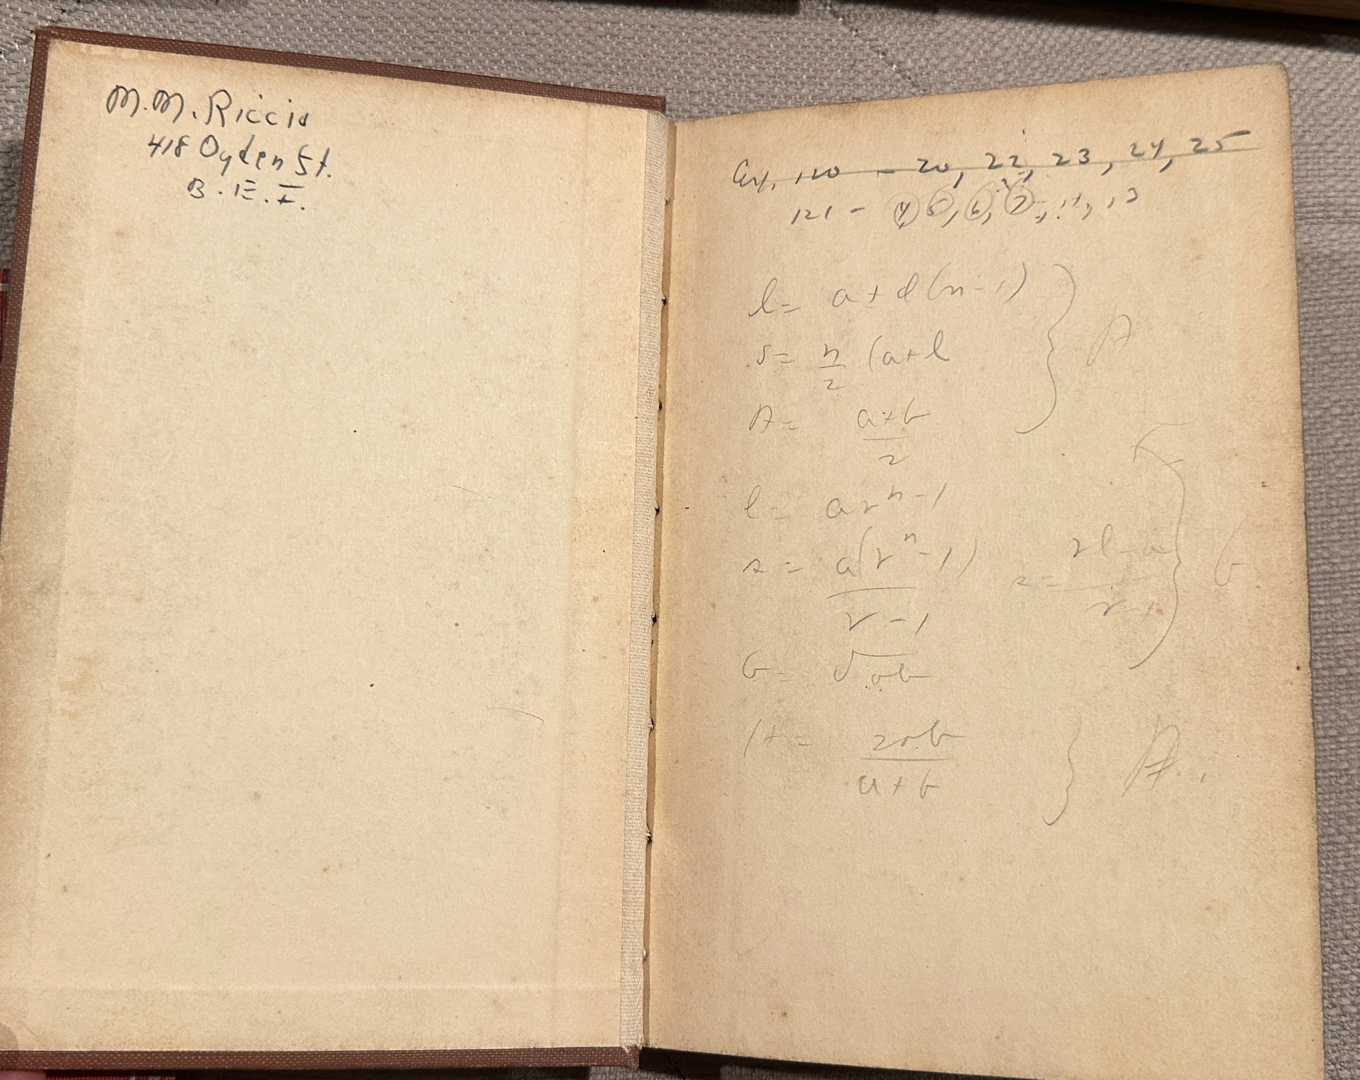 M.M. Riccio
418 Ogden St.
B.E.F.
120 - 20, 22, 23, 24, 25
121 - 4, 5, 6, 7, 11, 13
l = a + d(n-1)
s = n/2 (a+l
} A
A = a+b/2
l = ar^n-1
s = a(r^n-1)/r-1
s = rl-a/r-1
} G
G = √ab
H = 2ab/a+b
}